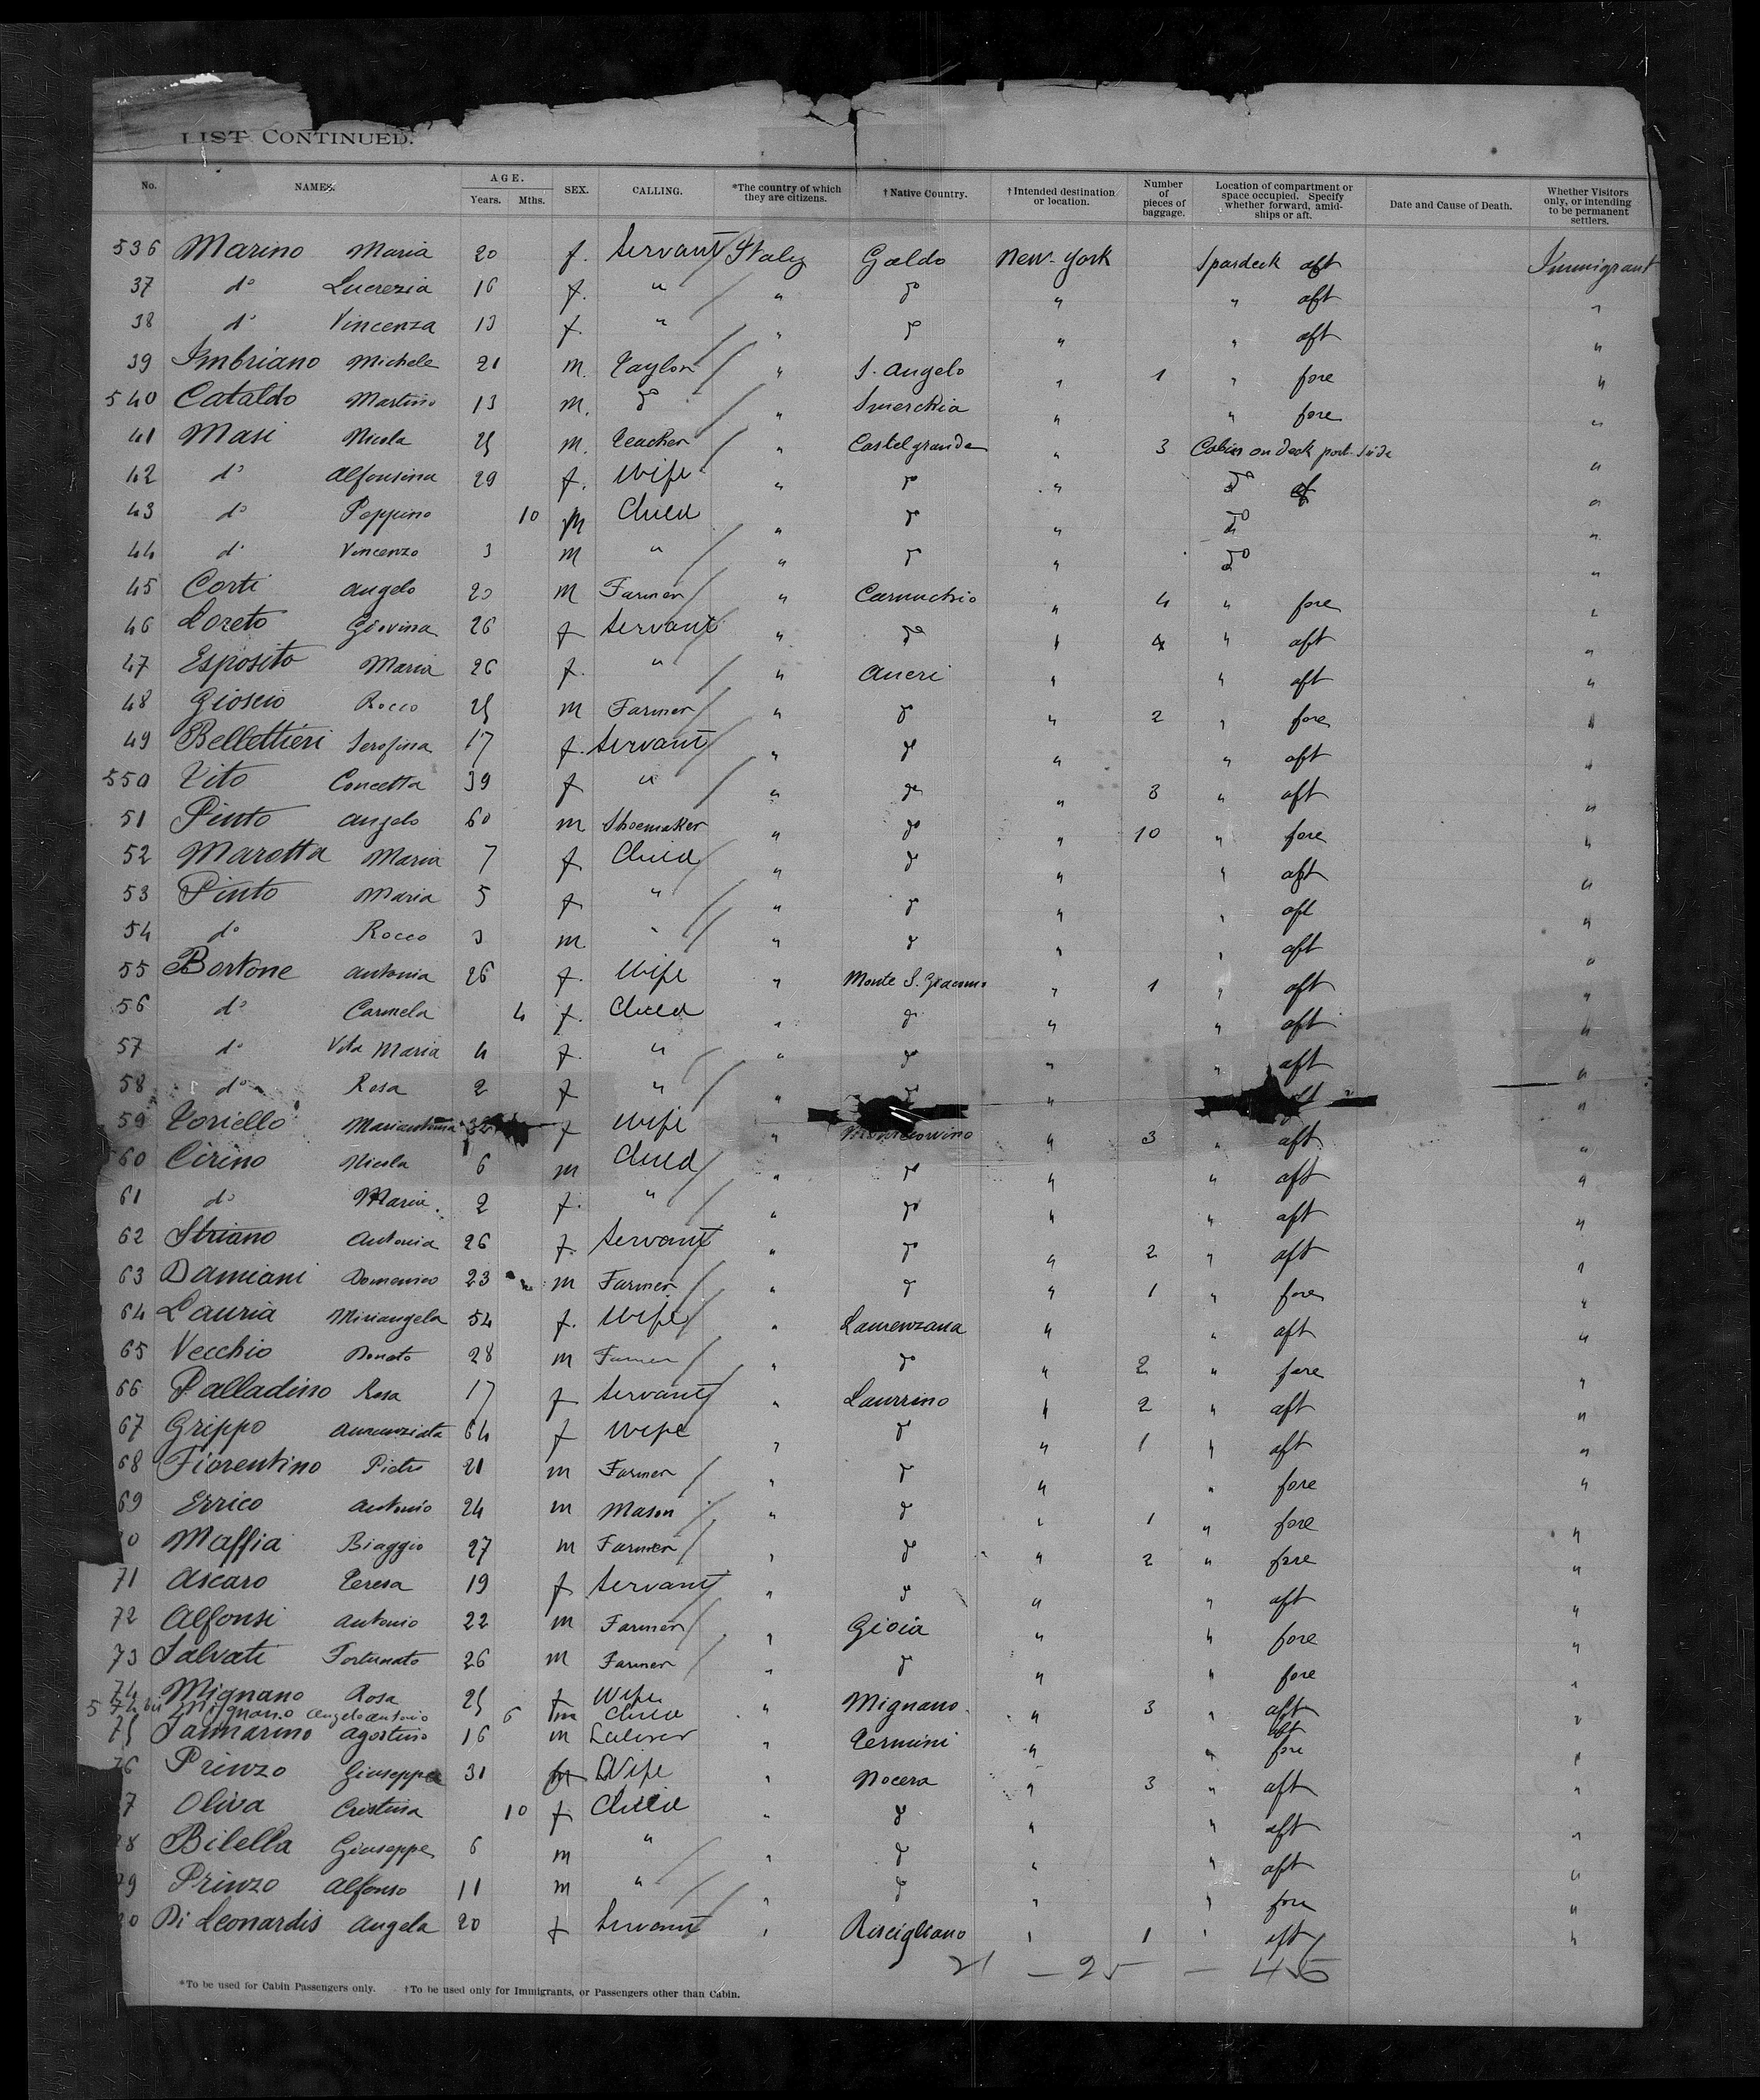 LIST CONTINUED.
No. NAMES. AGE. Years. Mths. SEX. CALLING. *The country of which they are citizens. †Native Country. †Intended destination or location. Number of pieces of baggage. Location of compartment or space occupied. Specify whether forward, amidships or aft. Date and Cause of Death. Whether Visitors only, or intending to be permanent settlers.
536 Marino Maria 20 f. Servant Italy Galdo New-York Spardeck aft Immigrant
37 do Lucrezia 16 f. " " do " " aft "
38 do Vincenza 13 f. " " do " " aft "
39 Imbriano Michele 21 m. Taylor " S. Angelo " 1 " fore "
540 Cataldo Martino 13 m. do " " " fore "
41 Masi Nicola 25 m. Teacher " Castelgrande " 3 Cabin on deck port-side "
42 do Alfonsina 29 f. Wife " do " do "
43 do Peppino 10 m Child " do " do "
44 do Vincenzo 3 m " " do " do "
45 Corti Angelo 20 m Farmer " Carunchio " 4 " fore "
46 Loreto Giovina 26 f Servant " do " 4 " aft "
47 Esposito Maria 26 f. " " " " aft "
48 Gioscio Rocco 25 m Farmer " do " 2 " fore "
49 Bellettieri Serafina 17 f. Servant " do " " aft "
550 Vito Concetta 39 f " " do " 3 " aft "
51 Pinto Angelo 60 m Shoemaker " do " 10 " fore "
52 Marotta Maria 7 f Child " do " " aft "
53 Pinto Maria 5 f " " do " " aft "
54 do Rocco 3 m " " do " " aft "
55 Bortone Antonia 26 f. Wife " Monte S. Giacomo " 1 " aft "
56 do Carmela 4 f. Child " do " " aft "
57 do Vita Maria 4 f. " " do " " aft "
58 do Rosa 2 f " " " "
59 Toriello Mariantonia 32 f Wife " " 3 " aft "
60 Cirino Nicola 6 m Child " do " " aft "
61 do Maria. 2 f. " " do " " aft "
62 Striano Antonia 26 f. Servant " do " 2 " aft "
63 Damiani Domenico 23 m Farmer " do " 1 " fore "
64 Lauria Miriangela 54 f. Wife " Laurenzana " " aft "
65 Vecchio Donato 28 m Farmer " do " 2 " fore "
66 Palladino Rosa 17 f Servant " Laurrino " 2 " aft "
67 Grippo Annunziata 64 f Wife " do " 1 " aft "
68 Fiorentino Pietro 21 m Farmer " do " " fore "
69 Errico Antonio 24 m Mason " do " 1 " fore "
0 Maffia Biaggio 27 m Farmer " do " 2 " fore "
71 Ascaro Teresa 19 f Servant " do " " aft "
72 Alfonsi Antonio 22 m Farmer " Gioia " " fore "
73 Salvati Fortunato 26 m Farmer " do " " fore "
74 Mignano Rosa 25 f Wife " Mignano " 3 " aft "
574 bis Mignano Angelo Antonio 6 m Child aft
75 Sanmarino Agostino 16 m Laborer " Termini " " fore "
76 Prinzo Giuseppa 31 f Wife " Nocera " 3 " aft "
7 Oliva Cristina 10 f Child " do " " aft "
78 Bilella Giuseppe 6 m " " do " " aft "
79 Prinzo Alfonso 11 m " " do " " fore "
80 Di Leonardis Angela 20 f Servant " Riscigliano " 1 " aft "
21 — 25 — 46
*To be used for Cabin Passengers only. †To be used only for Immigrants, or Passengers other than Cabin.